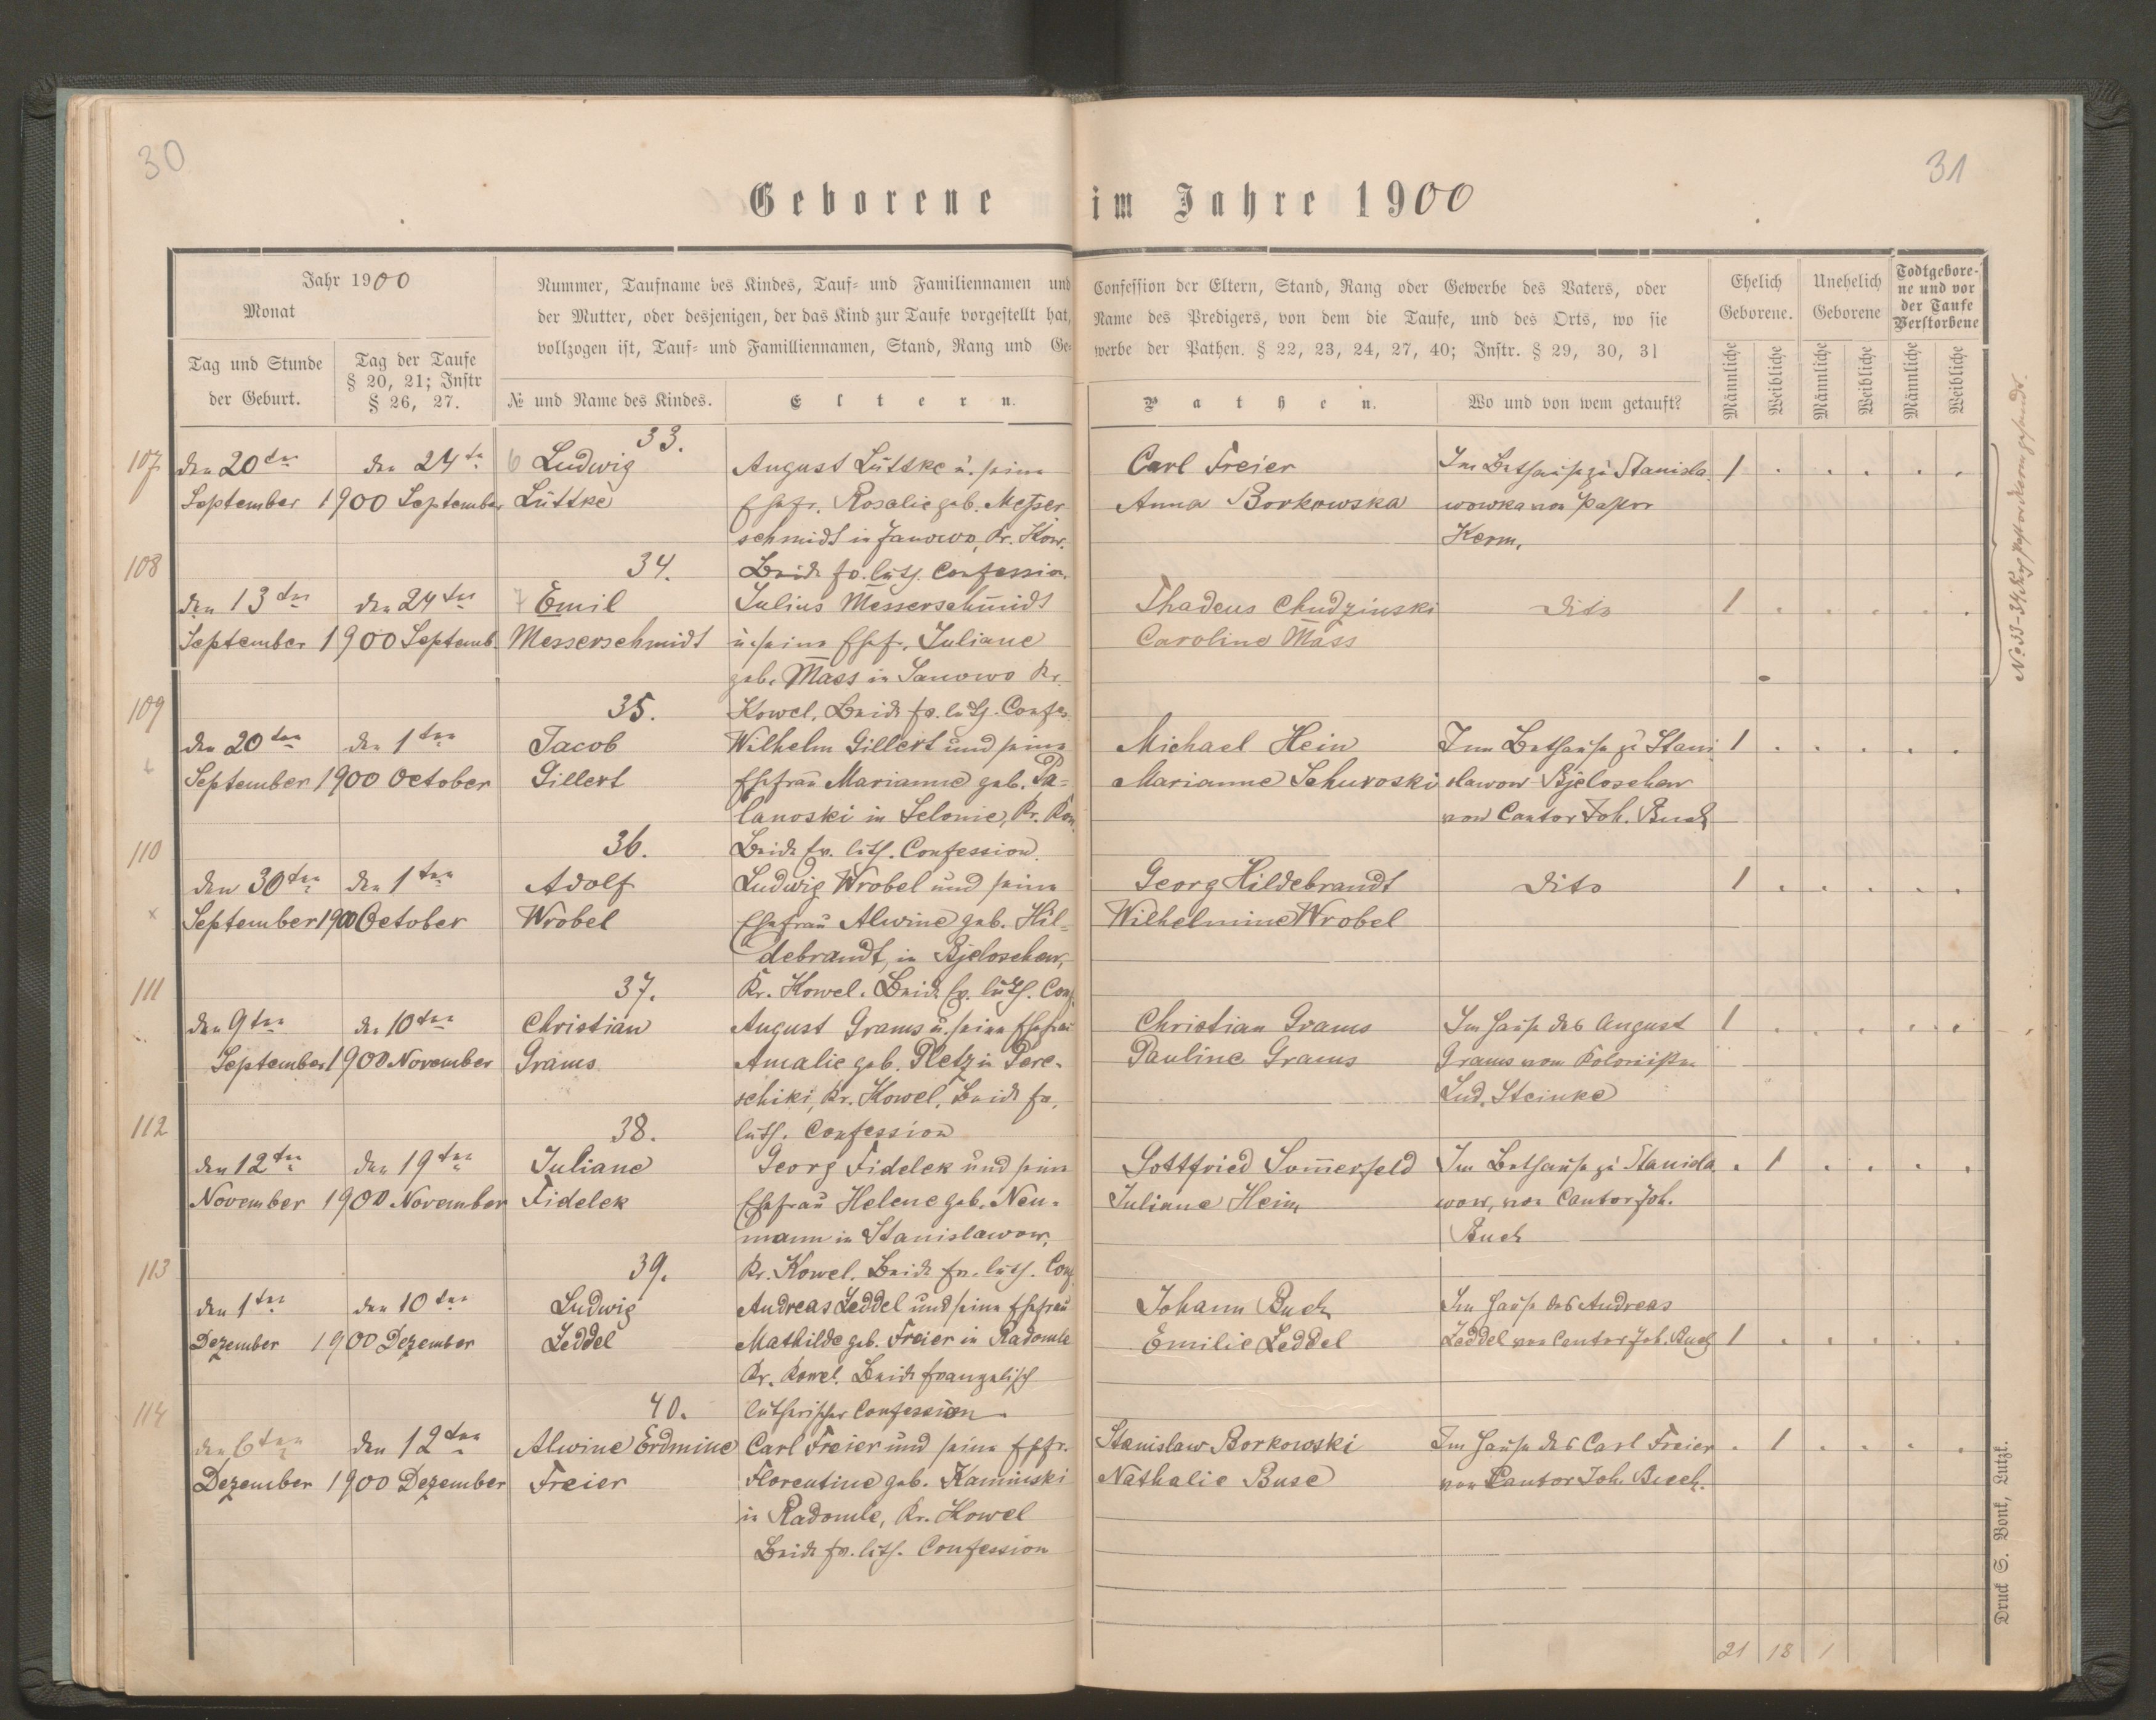 30
31
Geborene im Jahre 1900
Jahr 1900
Monat
Tag und Stunde
der Geburt.
Tag der Taufe
§ 20, 21; Instr
§ 26, 27.
Nummer, Taufname des Kindes, Tauf- und Familiennamen und
der Mutter, oder desjenigen, der das Kind zur Taufe vorgestellt hat,
vollzogen ist, Tauf- und Familliennamen, Stand, Rang und Ge-
№ und Name des Kindes.
Eltern.
Confession der Eltern, Stand, Rang oder Gewerbe des Vaters, oder
Name des Predigers, von dem die Taufe, und des Orts, wo sie
werbe der Pathen. § 22, 23, 24, 27, 40; Instr. § 29, 30, 31
Pathen.
Wo und von wem getauft?
Ehelich
Geborene.
Unehelich
Geborene
Todtgebore-
ne und vor
der Taufe
Verstorbene
Männliche
Weibliche
Männliche
Weibliche
Männliche
Weibliche
33.
107 den 20ten den 24ten 6 Ludwig August Lüttke u. seine Carl Freier Im Bethause zu Stanisla- 1 . . . . .
September 1900 September Lüttke Ehefr. Rosalie geb. Messer Anna Borkowska wowka von Pastor
schmidt in Janowo, Kr. Kow. Kerm.
108 34. Beide ev. luth. Confession.
den 13ten den 24ten 7 Emil Julius Messerschmidt Thadeus Chudzinski Dito 1 . . . . .
September 1900 Septemb. Messerschmidt u. seine Ehefr. Juliane Caroline Mass
geb. Mass in Janowo Kr.
109 35. Kowel. Beide ev. luth. Confes.
den 20ten den 1ten Jacob Wilhelm Gillert und seine Michael Hein Im Bethause zu Stani 1 . . . . .
September 1900 October Gillert Ehefrau Marianne geb. Pa- Marianne Schuroski slawow-Bjeloschew
lanoski in Selonie, Kr. Kow. von Cantor Joh. Buch
110 36. Beide ev. luth. Confession.
den 30ten den 1ten Adolf Ludwig Wrobel und seine Georg Hildebrandt Dito 1 . . . . .
x September 1900 October Wrobel Ehefrau Alwine geb. Hil- Wilhelmine Wrobel
debrandt, in Bjeloschew,
111 37. Kr. Kowel. Beide ev. luth. Conf.
den 9ten den 10ten Christian August Grams u. seine Ehefrau Christian Grams Im Hause des August 1 . . . . .
September 1900 November Grams Amalie geb. Pletz in Pere- Pauline Grams Grams vom Kolonisten
schiki, Kr. Kowel, Beide ev. Lud. Steinke
112 38. luth. Confession
den 12ten den 19ten Juliane Georg Fidelek und seine Gottfried Sommerfeld Im Bethause zu Stanisla . 1 . . . .
November 1900 November Fidelek Ehefrau Helene geb. Neu- Juliane Hein wow, von Cantor Joh.
mann in Stanislawow, Buch
113 39. Kr. Kowel. Beide ev. luth. Conf
den 1ten den 10ten Ludwig Andreas Zeddel und seine Ehefrau Johann Buch Im Hause des Andreas
Dezember 1900 Dezember Zeddel Mathilde geb. Freier in Radomle Emilie Zeddel Zeddel von Cantor Joh. Buch 1 . . . . .
Kr. Kowel. Beide Evangelisch
114 40. lutherischer Confession
den 6ten den 12ten Alwine Erdmine Carl Freier und seine Ehfr. Stanislaw Borkowski Im Hause des Carl Freier . 1 . . . .
Dezember 1900 Dezember Freier Florentine geb. Kaminski Nathalie Buse von Cantor Joh. Buch.
in Radomle, Kr. Kowel
Beide ev. luth. Confession
21 18 1
No 33-34
Druck S. Bonk, Lutzk.